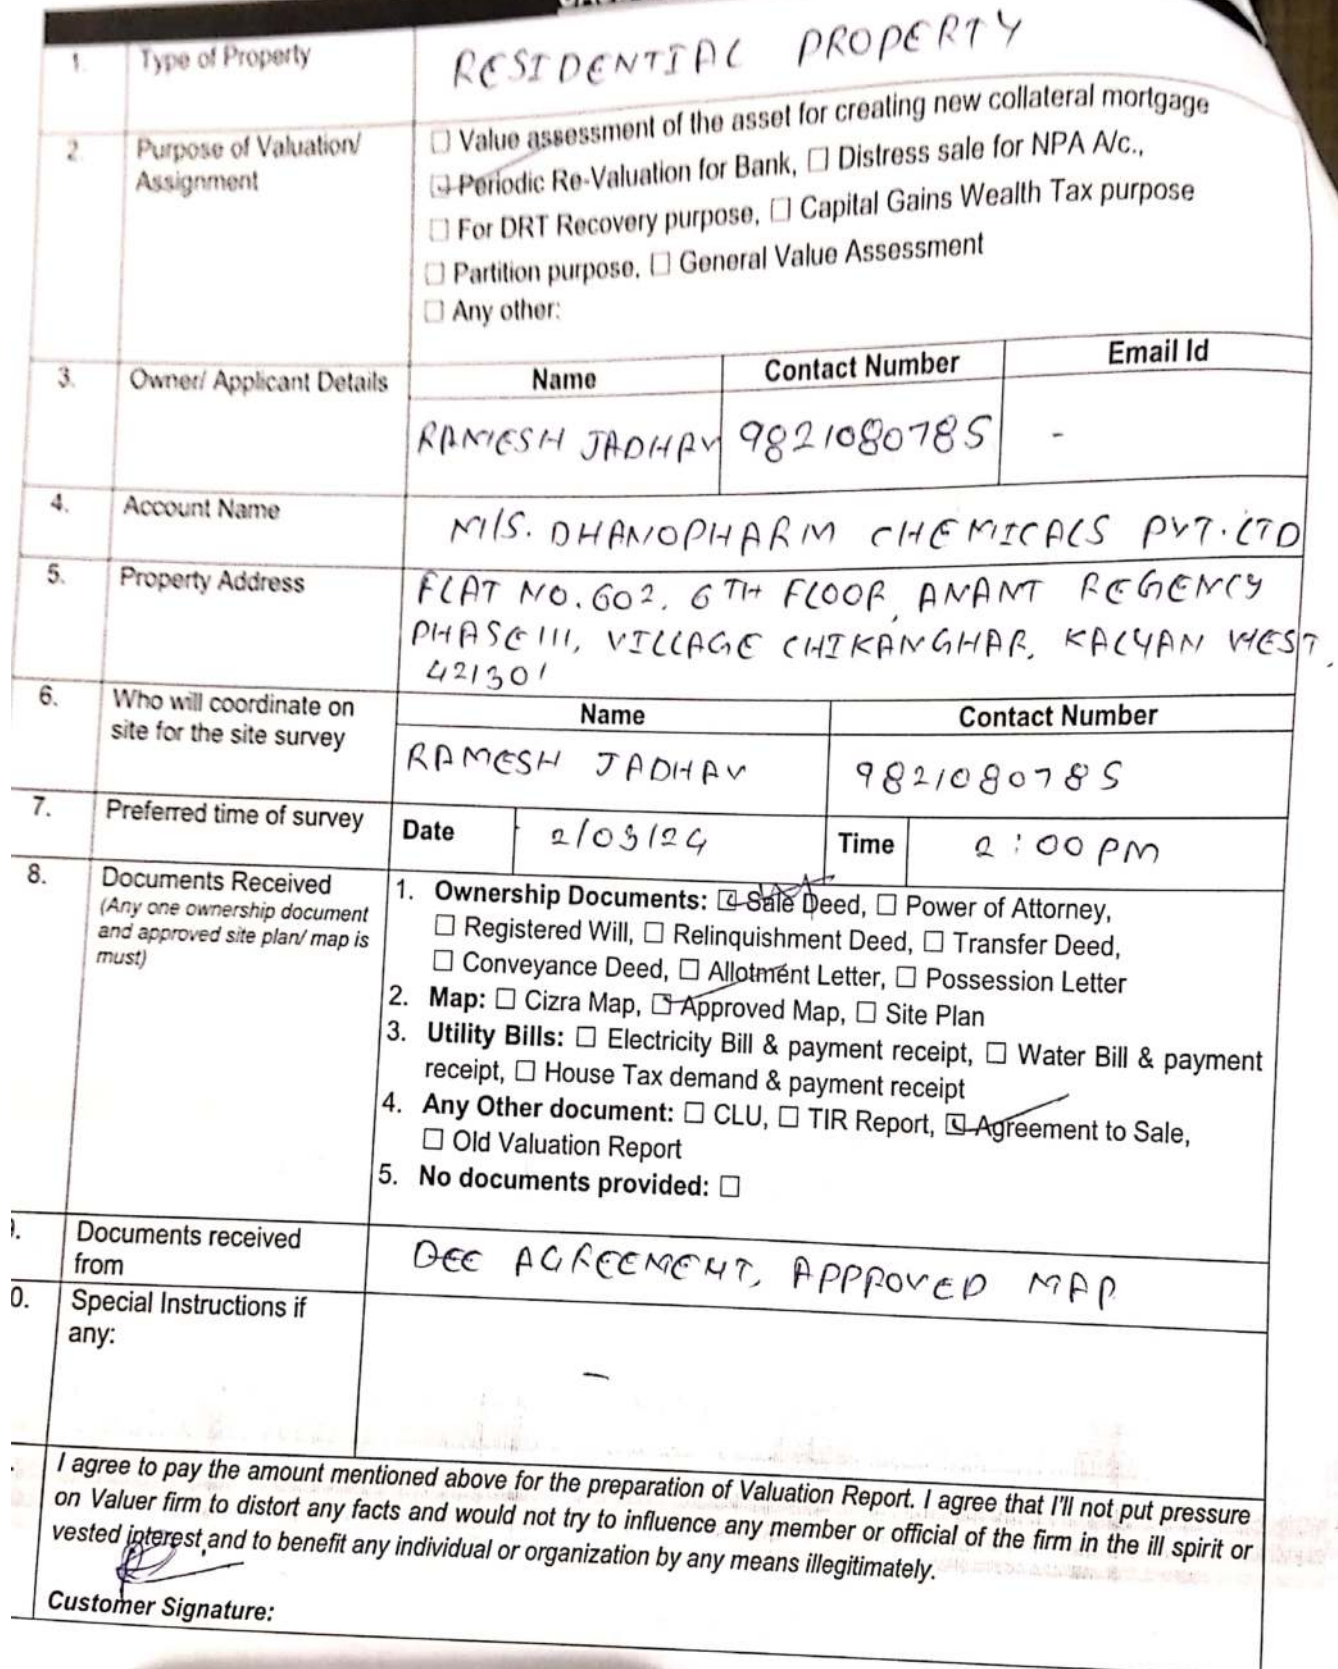 1. Type of Property RESIDENTIAL PROPERTY
2. Purpose of Valuation/ Assignment
☐ Value assessment of the asset for creating new collateral mortgage
☑ Periodic Re-Valuation for Bank, ☐ Distress sale for NPA A/c.,
☐ For DRT Recovery purpose, ☐ Capital Gains Wealth Tax purpose
☐ Partition purpose, ☐ General Value Assessment
☐ Any other:
3. Owner/ Applicant Details Name Contact Number Email Id
RAMESH JADHAV 9821080785 -
4. Account Name M/S. DHANOPHARM CHEMICALS PVT. LTD
5. Property Address FLAT NO. 602, 6TH FLOOR, ANANT REGENCY
PHASE III, VILLAGE CHIKANGHAR, KALYAN WEST,
421301
6. Who will coordinate on site for the site survey Name Contact Number
RAMESH JADHAV 9821080785
7. Preferred time of survey Date 2/03/24 Time 2:00 PM
8. Documents Received
(Any one ownership document
and approved site plan/ map is
must)
1. Ownership Documents: ☑ Sale Deed, ☐ Power of Attorney,
☐ Registered Will, ☐ Relinquishment Deed, ☐ Transfer Deed,
☐ Conveyance Deed, ☐ Allotment Letter, ☐ Possession Letter
2. Map: ☐ Cizra Map, ☑ Approved Map, ☐ Site Plan
3. Utility Bills: ☐ Electricity Bill & payment receipt, ☐ Water Bill & payment
receipt, ☐ House Tax demand & payment receipt
4. Any Other document: ☐ CLU, ☐ TIR Report, ☑ Agreement to Sale,
☐ Old Valuation Report
5. No documents provided: ☐
. Documents received from AGREEMENT, APPPOVED MAP
0. Special Instructions if any: -
I agree to pay the amount mentioned above for the preparation of Valuation Report. I agree that I'll not put pressure
on Valuer firm to distort any facts and would not try to influence any member or official of the firm in the ill spirit or
vested interest and to benefit any individual or organization by any means illegitimately.
Customer Signature: